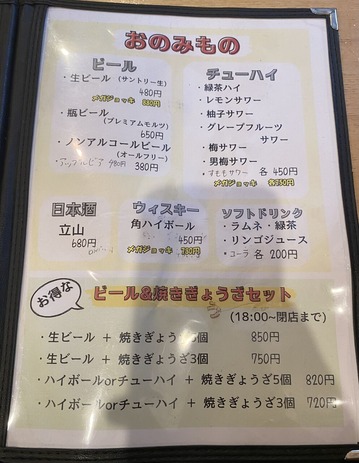 おのみもの
ビール
・生ビール (サントリー生)
480円
メガジョッキ 880円
・瓶ビール
(プレミアムモルツ)
650円
・ノンアルコールビール
(オールフリー)
380円
チューハイ
・緑茶ハイ
・レモンサワー
・柚子サワー
・グレープフルーツ
サワー
・梅サワー
・男梅サワー
・すももサワー 各 450円
メガジョッキ 各750円
日本酒
立山
680円
ウィスキー
角ハイボール
450円
メガジョッキ 750円
ソフトドリンク
・ラムネ・緑茶
・リンゴジュース
・コーラ 各 200円
お得な
ビール&焼きぎょうざセット
(18:00~閉店まで)
・生ビール + 焼きぎょうざ5個 850円
・生ビール + 焼きぎょうざ3個 750円
・ハイボールorチューハイ + 焼きぎょうざ5個 820円
・ハイボールorチューハイ + 焼きぎょうざ3個 720円